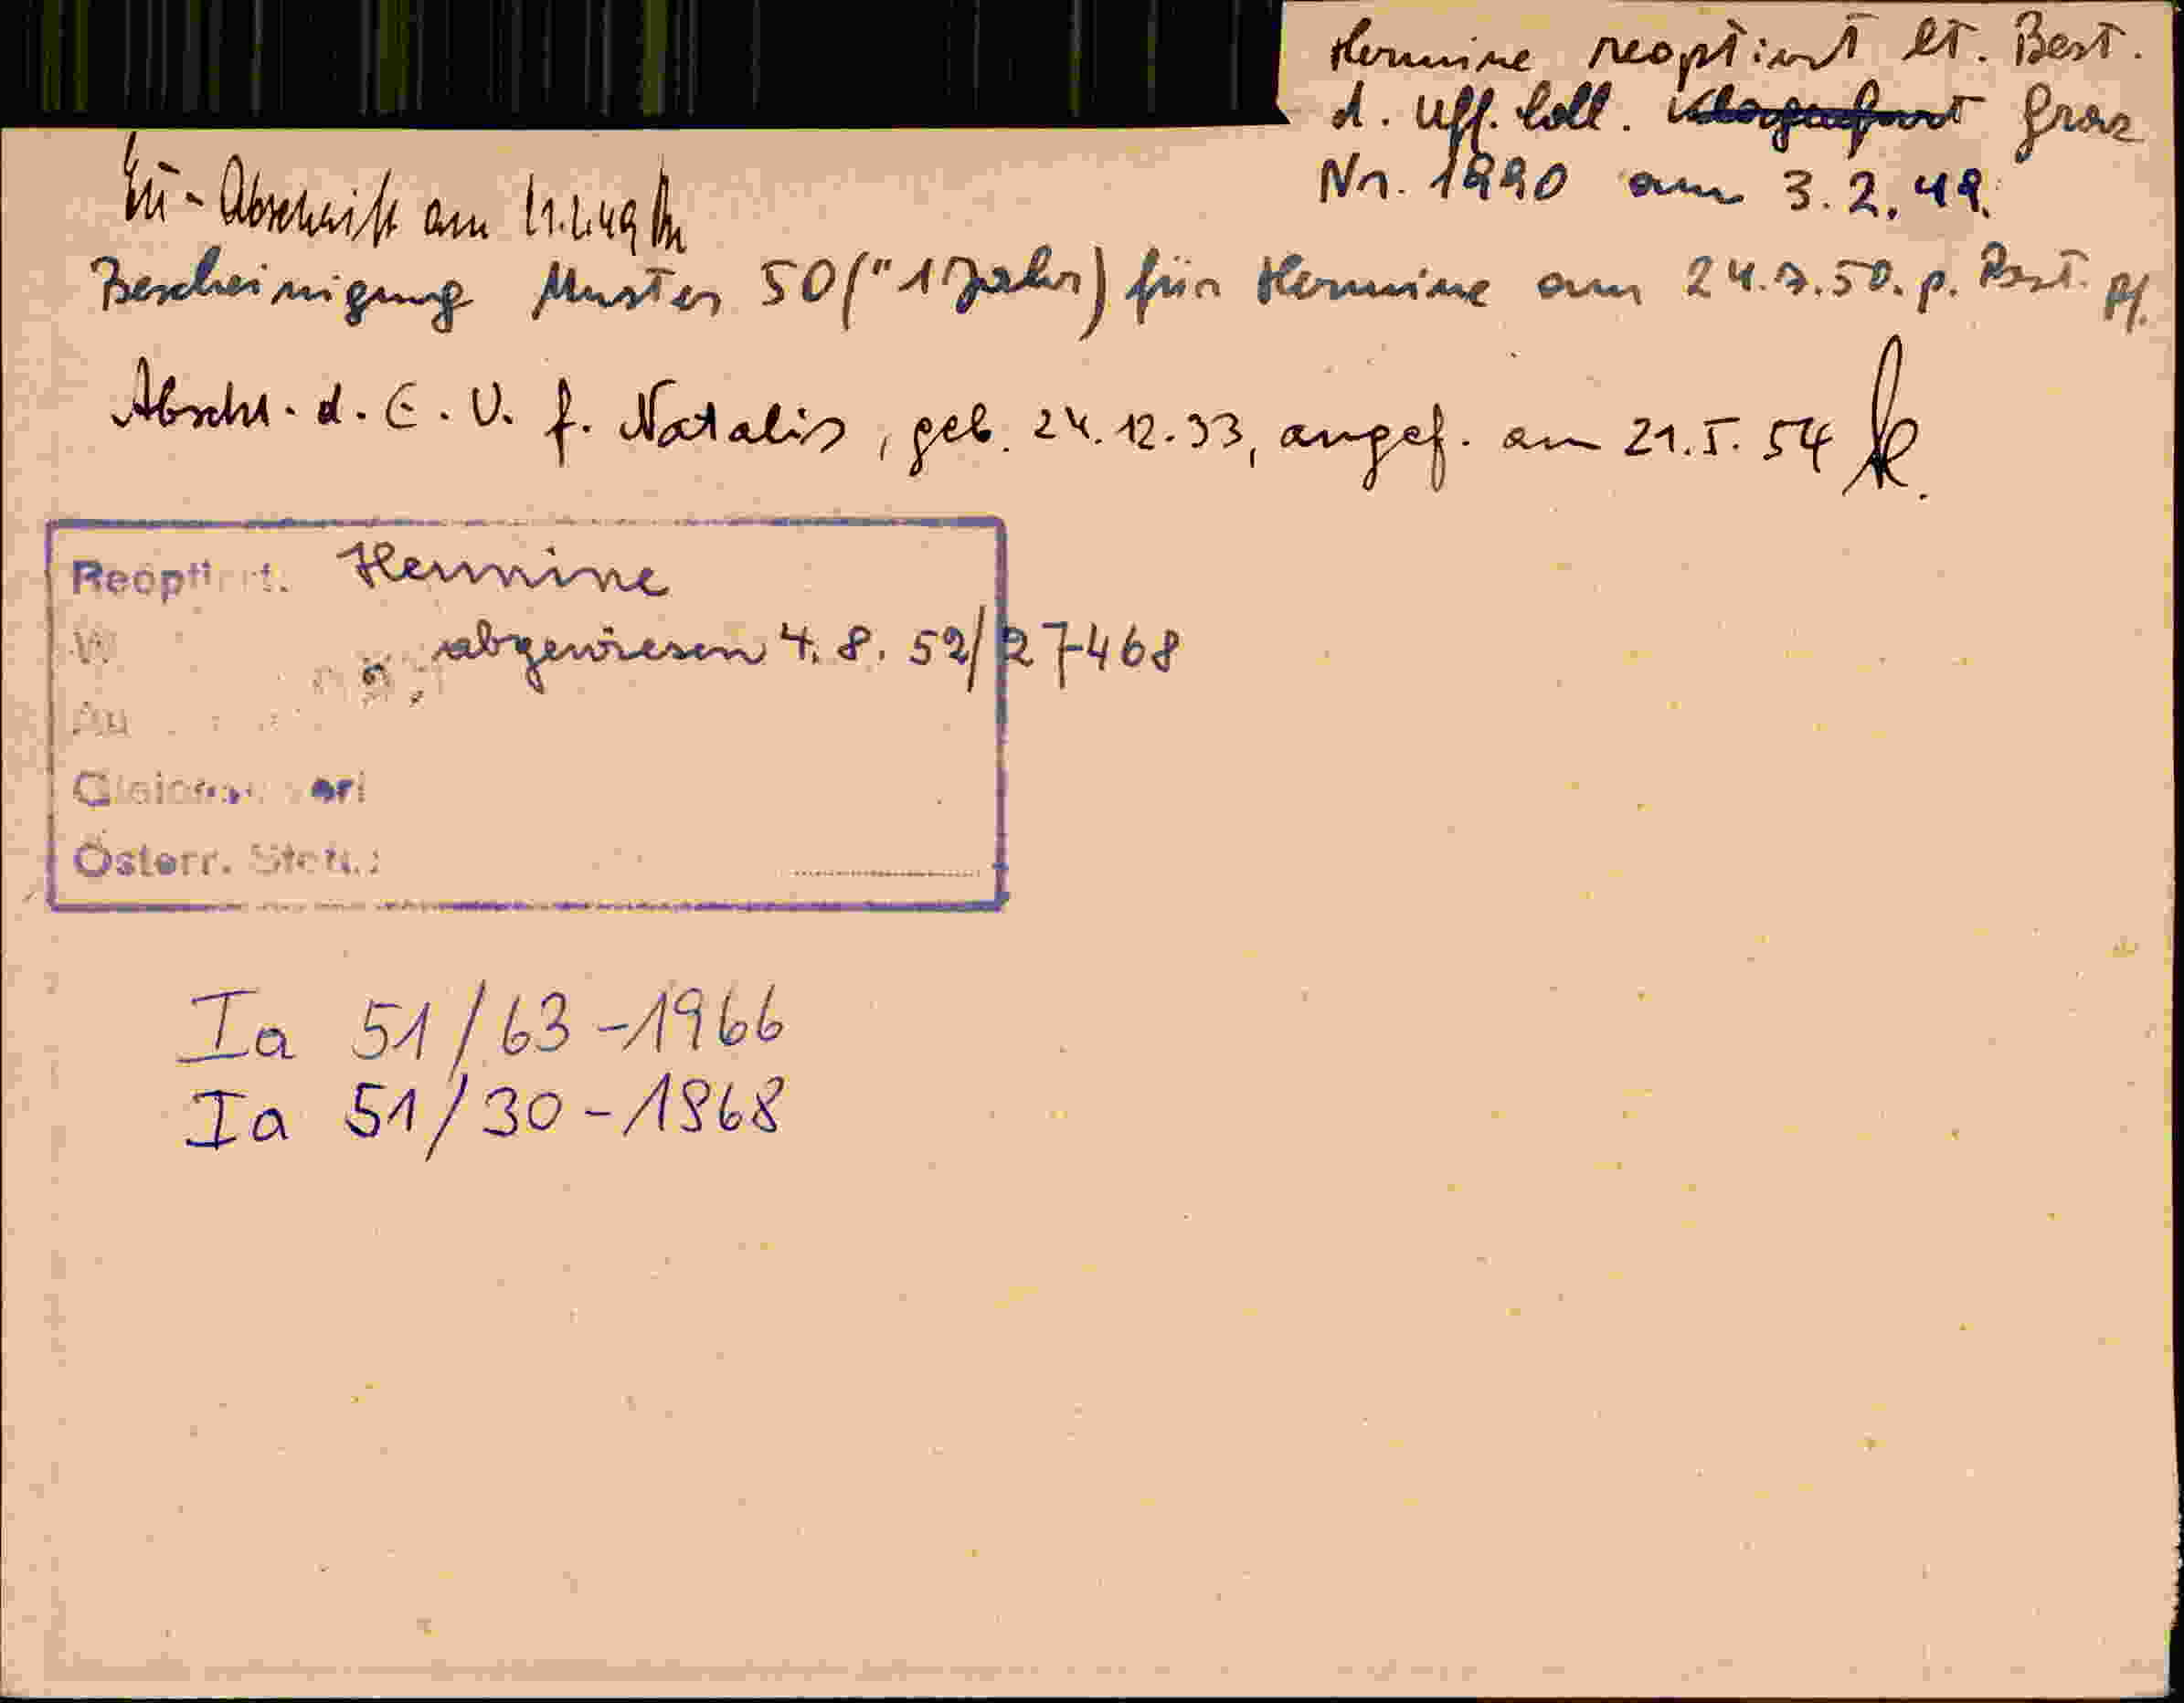 Hermine reoptiert lt. Best.
d. Uff. Coll. Klagenfurt Graz
Nr. 1990 am 3.2.49.
EU-Abschrift am
Bescheinigung Muster 50 (" 1 Jahr) für Hermine am 24.7.50. p. Post.
Abschr. d. E. U. f. Natalis, geb. 24.12.33, angef. am 21.5.54
Reoptiert. Hermine
abgewiesen 4.8.52/27468
Au
Österr. Stet.:
Ia 51/63-1966
Ia 51/30-1968